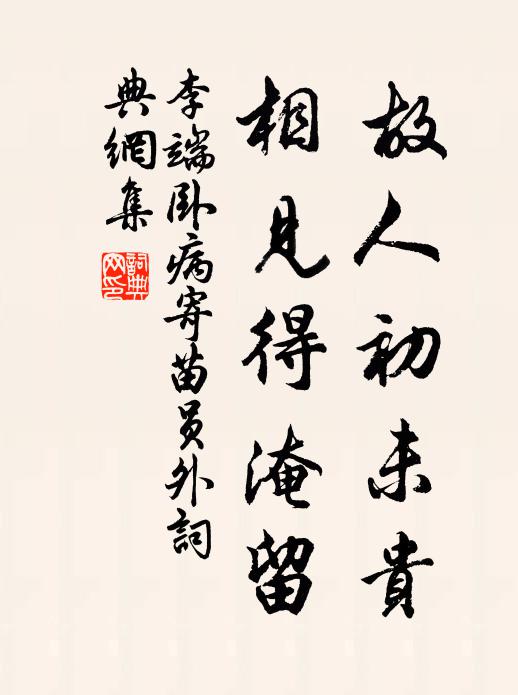 故人初未貴
相見得淹留
李端臥病寄苗員外詞
典網集
詞典网印